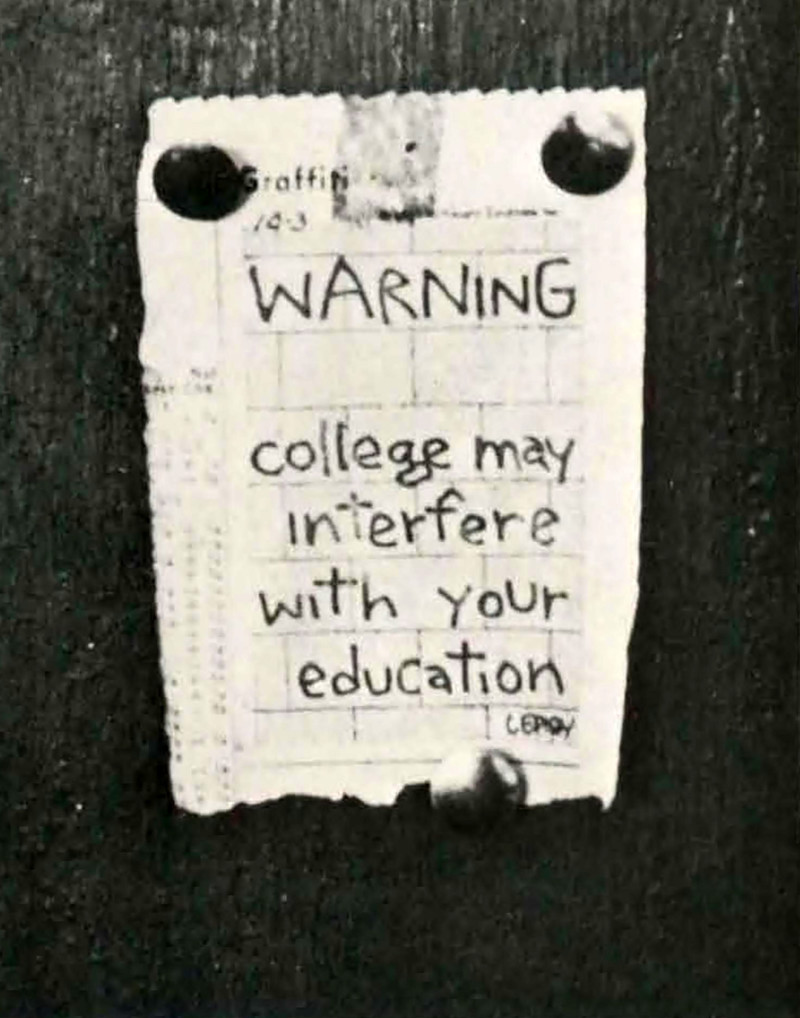 Graffiti
10-3
WARNING
college may
interfere
with your
education
LEROY